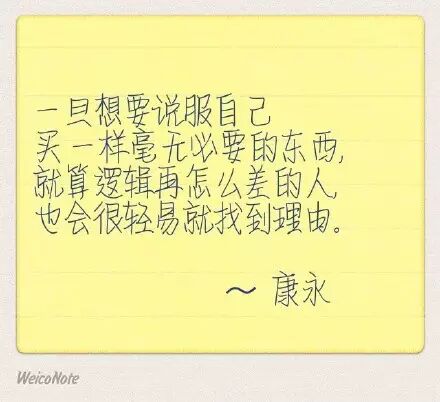 一旦想要说服自己
买一样毫无必要的东西,
就算逻辑再怎么差的人,
也会很轻易就找到理由。
~ 康永
WeicoNote